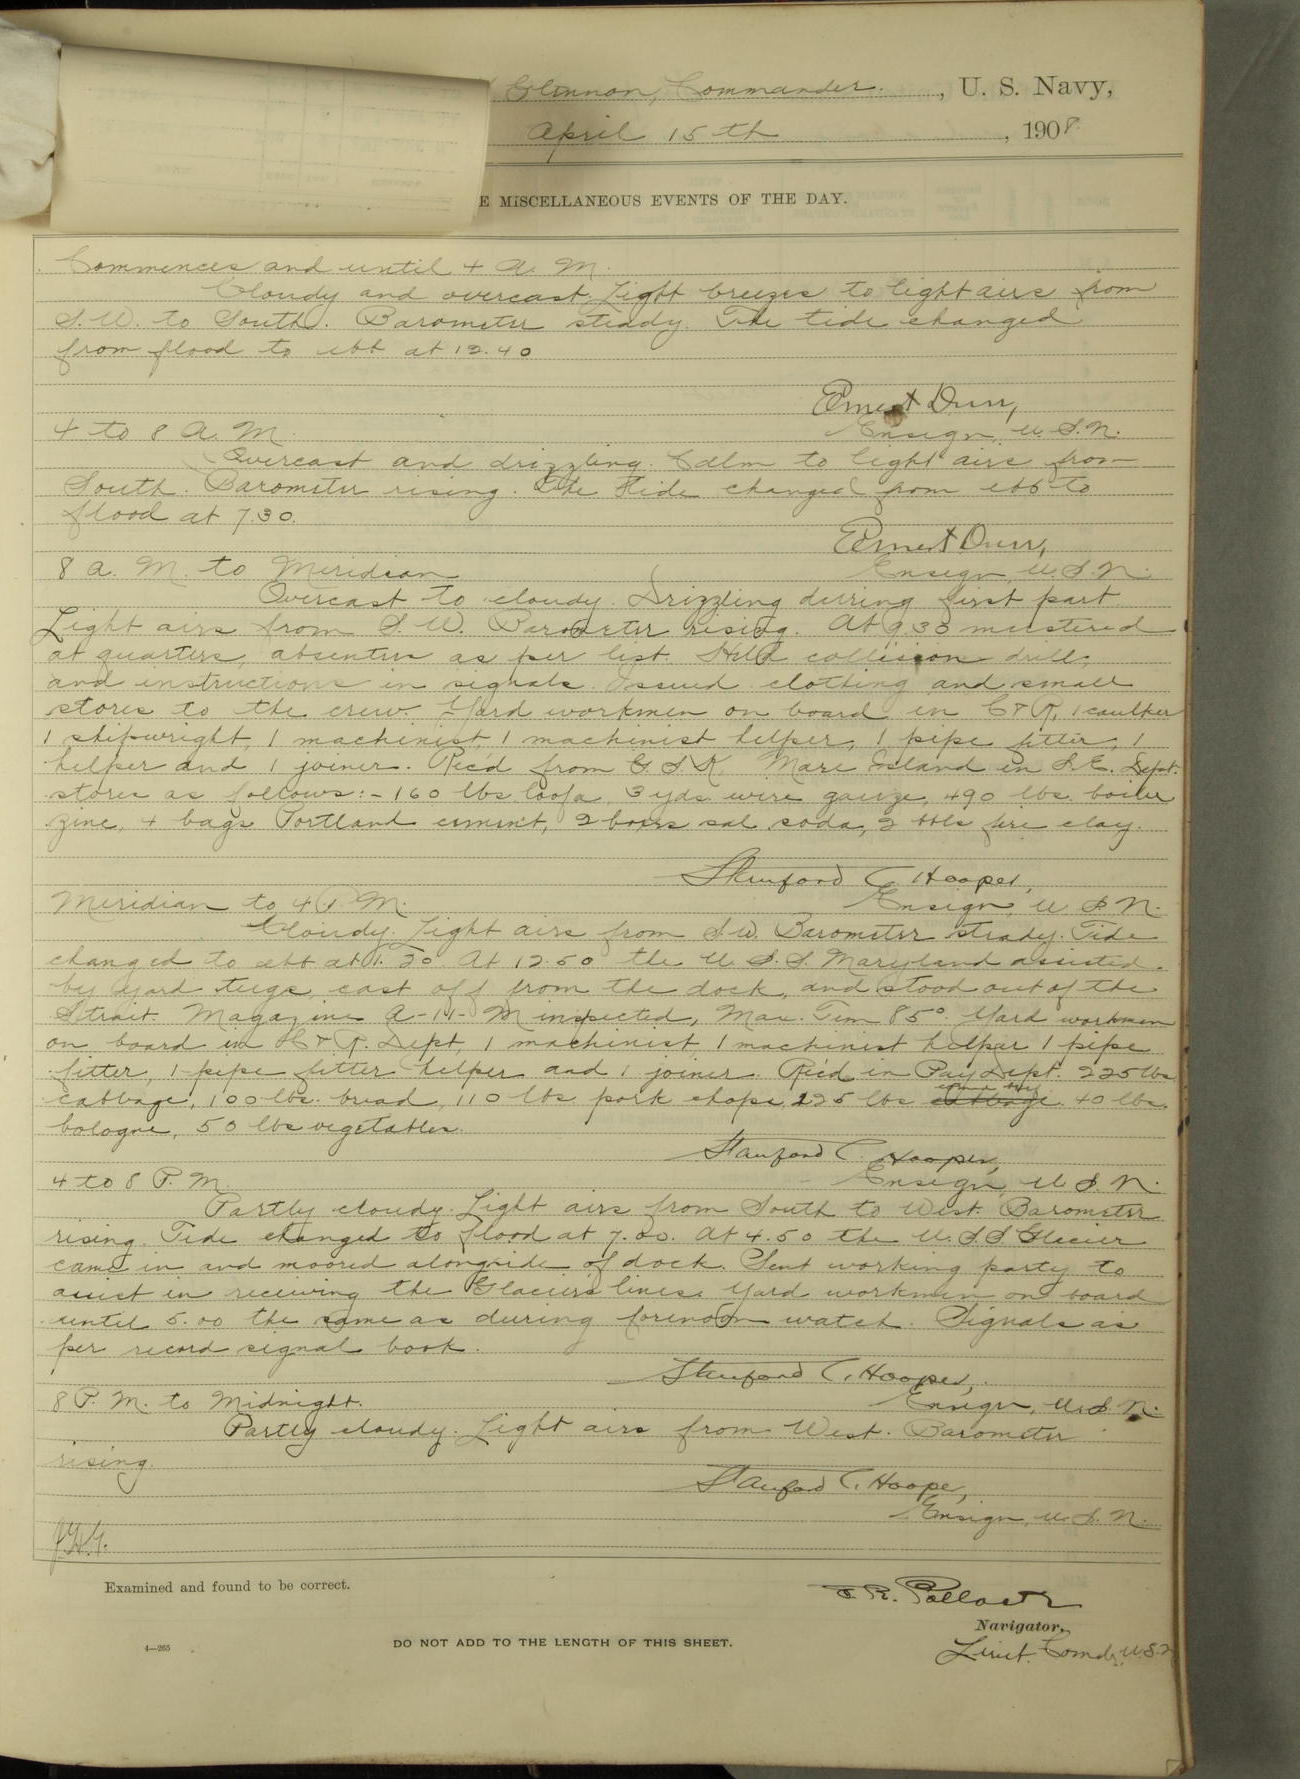 Glennon, Commander. , U. S. Navy,
April 15th , 1908
E MISCELLANEOUS EVENTS OF THE DAY.
Commences and until 4 A. M.
Cloudy and overcast, Light breezes to light airs from
S. W. to South. Barometer steady. The tide changed
from flood to ebb at 12.40
Ernest Durr,
4 to 8 A. M. Ensign, U. S. N.
Overcast and drizzling. Calm to light airs from
South. Barometer rising. The tide changed from ebb to
flood at 7.30.
Ernest Durr,
8 a. M. to Meridian Ensign, U. S. N.
Overcast to cloudy. Drizzling during first part.
Light airs from S. W. Barometer rising. At 9.30 mustered
at quarters, absentees as per list. Held collision drill,
and instructions in signals. Issued clothing and small
stores to the crew. Yard workmen on board in C & R, 1 caulker
1 shipwright, 1 machinist, 1 machinist helper, 1 pipe fitter, 1
helper and 1 joiner. Rec'd from G. S. K. Mare Island in S. E. Dept.
stores as follows:- 160 lbs. loofa, 3 yds. wire gauze, 490 lbs. boiler
zinc, 4 bags Portland cement, 2 boxes sal soda, 2 bbls fire clay.
Stanford C. Hooper,
Meridian to 4 P. M. Ensign, U. S. N.
Cloudy. Light airs from S. W. Barometer steady. Tide
changed to ebb at 1.20. At 12.50 the U. S. S. Maryland assisted
by yard tugs, cast off from the dock, and stood out of the
Strait. Magazine A-11-M inspected, Max. Tem 85°. Yard workmen
on board in C & R. Dept, 1 machinist 1 machinist helper 1 pipe
fitter, 1 pipe fitter helper and 1 joiner. Rec'd in Pay Dept. 225 lbs
cabbage, 100 lbs. bread, 110 lbs pork chops, 225 lbs cabbage 40 lbs.
bologne, 50 lbs vegetables.
Stanford C. Hooper,
4 to 8 P. M. Ensign, U. S. N.
Partly cloudy. Light airs from South to West. Barometer
rising. Tide changed to flood at 7.00. At 4.50 the U. S. S Glacier
came in and moored alongside of dock. Sent working party to
assist in receiving the Glacier's lines. Yard workmen on board
until 5.00 the same as during forenoon watch. Signals as
per record signal book.
Stanford C. Hooper,
8 P. M. to Midnight. Ensign, U. S. N.
Partly cloudy. Light airs from West. Barometer
rising.
Stanford C. Hooper,
Ensign, U. S. N.
Examined and found to be correct.
Navigator,
Lieut. Comdr. U.S.N
4—265
DO NOT ADD TO THE LENGTH OF THIS SHEET.